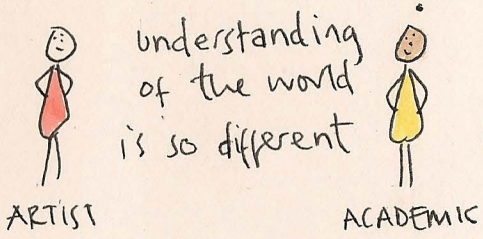 understanding
of the world
is so different
ARTIST
ACADEMIC